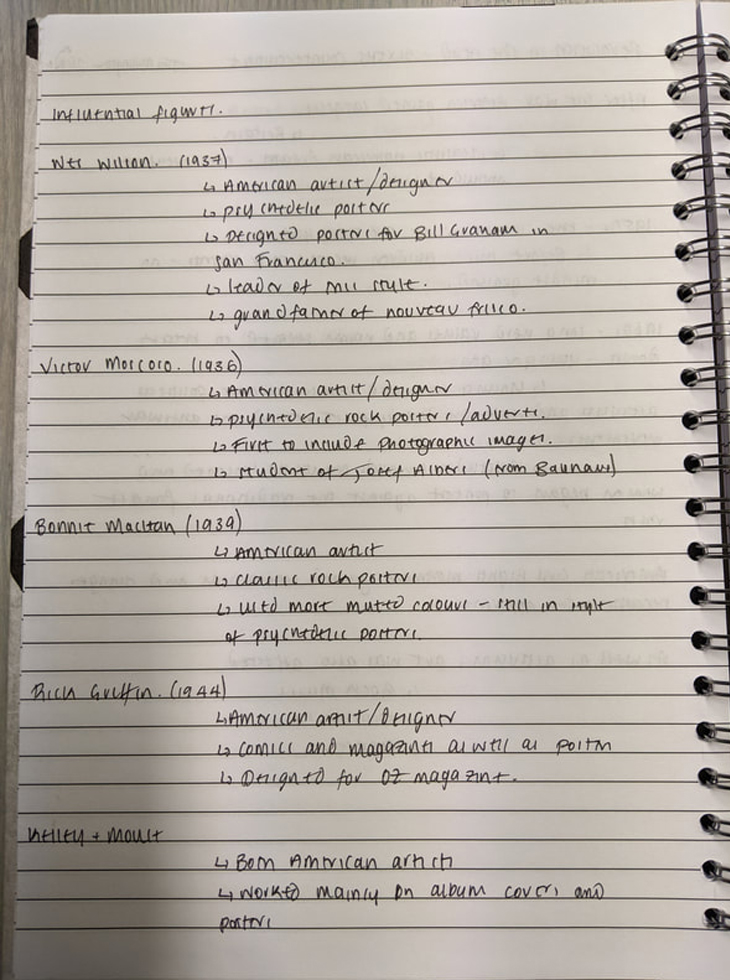 Influential figures.
Wes Wilson. (1937)
↳ American artist/designer
↳ psychedelic posters
↳ Designed posters for Bill Graham in
San Francisco.
↳ leader of this style.
↳ grandfather of nouveau frisco.
Victor Moscoso. (1936)
↳ American artist/designer
↳ psychedelic rock posters/adverts.
↳ First to include photographic images.
↳ student of Josef Albers (from Bauhaus)
Bonnie Maclean (1939)
↳ American artist
↳ classic rock posters
↳ used more muted colours - still in style
of psychedelic posters.
Rick Griffin. (1944)
↳ American artist/designer
↳ comics and magazines as well as posters
↳ Designed for OZ magazine.
Kelley + Mouse
↳ Both American artists
↳ worked mainly on album covers and
posters